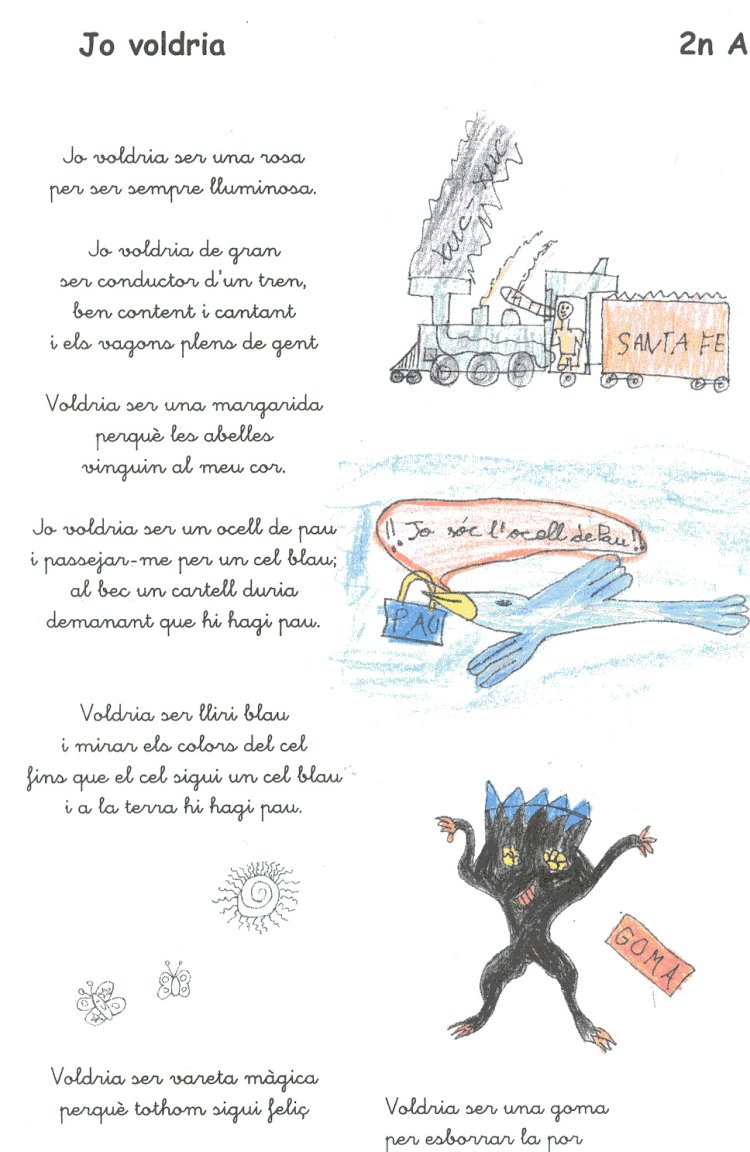 Jo voldria
2n A
Jo voldria ser una rosa
per ser sempre lluminosa.
Jo voldria de gran
ser conductor d'un tren,
ben content i cantant
i els vagons plens de gent
xuc-xuc
SANTA FE
Voldria ser una margarida
perquè les abelles
vinguin al meu cor.
Jo voldria ser un ocell de pau
i passejar-me per un cel blau;
al bec un cartell duria
demanant que hi hagi pau.
!! Jo sóc l'ocell de Pau!!
PAU
Voldria ser lliri blau
i mirar els colors del cel
fins que el cel sigui un cel blau
i a la terra hi hagi pau.
GOMA
Voldria ser vareta màgica
perquè tothom sigui feliç
Voldria ser una goma
per esborrar la por